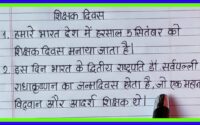 शिक्षक दिवस
1. हमारे भारत देश में हरसाल 5 सितंबर को
शिक्षक दिवस मनाया जाता है।
2. इस दिन भारत के द्वितीय राष्ट्रपति डॉ. सर्वपल्ली
राधाकृष्णन का जन्मदिवस होता है, जो एक महान
विद्वान और आदर्श शिक्षक थे।